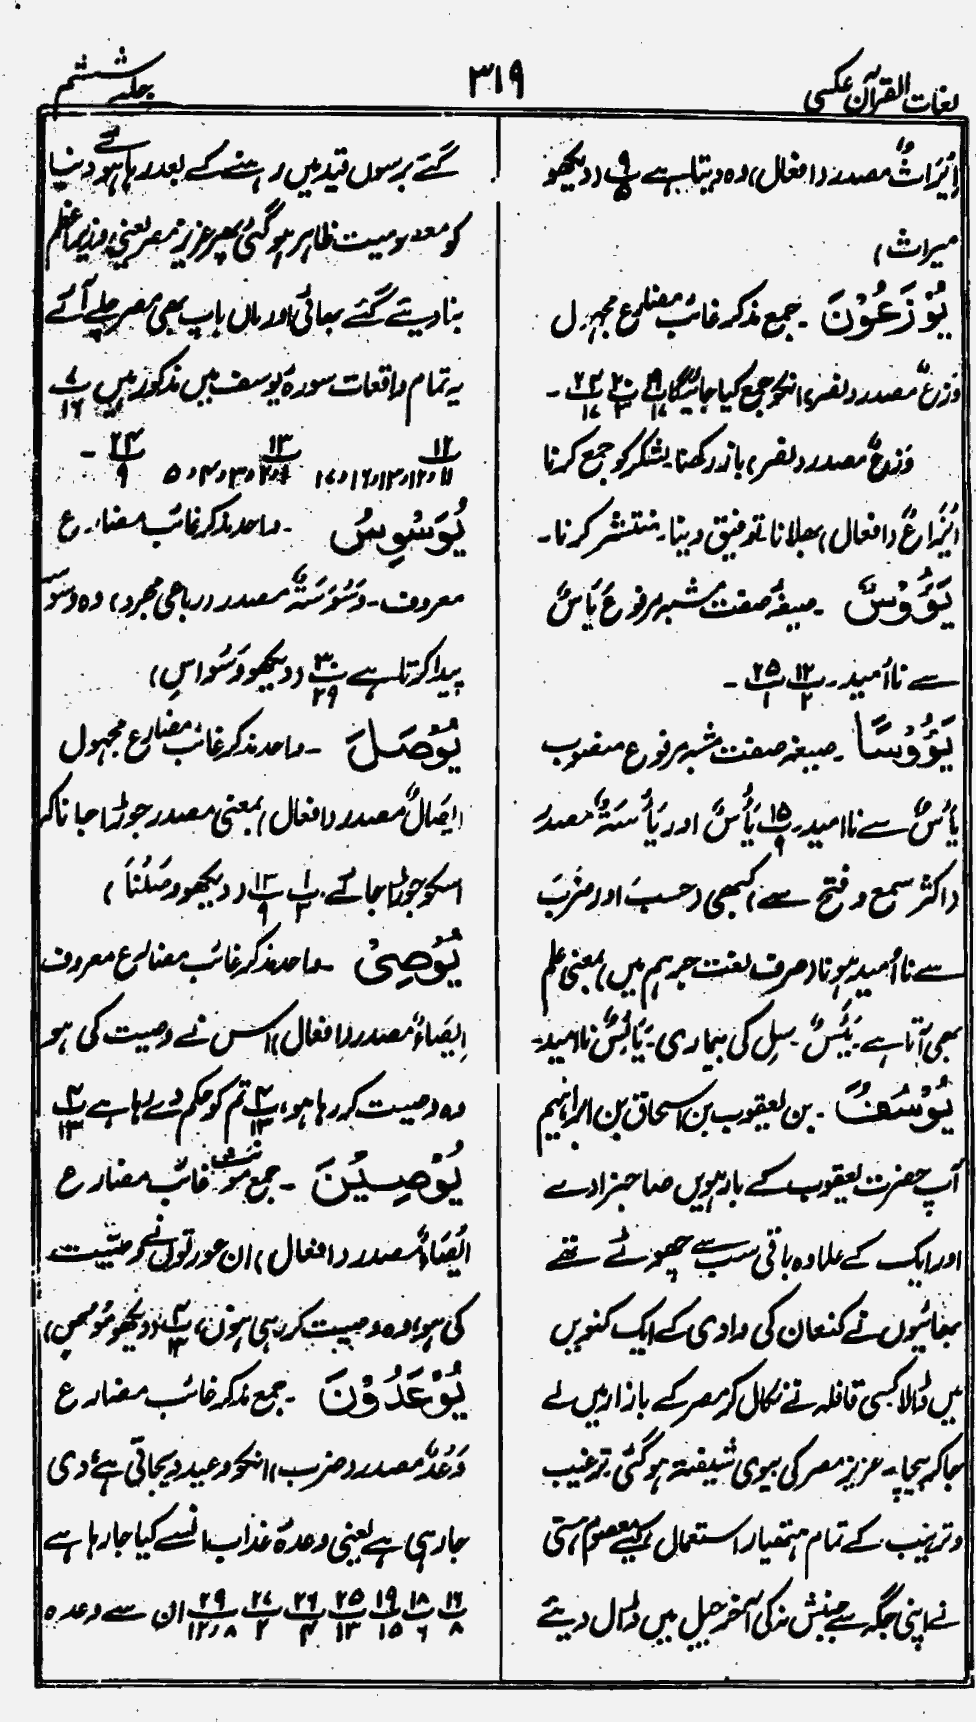 لغات القرآن عکسی
۳۱۹
جلد ششم
اِیْرَاثٌ مصدر (افعال) وہ دیتا ہے پ۹/۵ (دیکھو
میراث)
یُوْزَعُوْنَ ۔ جمع مذکر غائب مضارع مجہول
وَزْعٌ مصدر (نصر) انکو جمع کیا جائیگا پ۱۹/۱۷ پ۲۰/۳ پ۲۴/۱۷ ۔
وَزْعٌ مصدر (نصر) باز رکھنا لشکر کو جمع کرنا
اِیْزَاعٌ (افعال) جلانا توفیق دینا ۔ منتشر کرنا ۔
یَؤُوْسٌ ۔ صیغہ صفت مشبہ مرفوع یَأْسٌ
سے ناامید ۔ پ۱۲/۲ پ۲۵/۱ ۔
یَؤُوْسًا ۔ صیغہ صفت مشبہ مرفوع منصوب
یَأْسٌ سے ناامید ۔ پ۱۵/۹ یَأْسٌ اور یَأْسَۃٌ مصدر
(اکثر سمع و فتح سے) کبھی (حسب اور ضرب
سے ناامید ہونا (صرف لغت جرہم میں) بمعنی علم
بھی آتا ہے ۔ یَئِسٌ ۔ سِل کی بیماری ۔ یَائِسٌ ناامید ۔
یُوْسُفُ ۔ بن یعقوب بن اسحاق بن ابراہیم
آپ حضرت یعقوب کے بارہویں صاحبزادے
اور ایک کے علاوہ باقی سب سے چھوٹے تھے
بھائیوں نے کنعان کی وادی کے ایک کنویں
میں ڈالا کسی قافلہ نے نکال کر مصر کے بازار میں لے
جا کر بیچا ۔ عزیز مصر کی بیوی شیفتہ ہو گئی ترغیب
و ترہیب کے تمام ہتھیار استعمال کیے معصوم ہستی
نے اپنی جگہ سے جنبش نہ کی آخر جیل میں ڈال دیئے
گئے برسوں قید میں رہنے کے بعد رہا ہوئے دنیا
کو معصومیت ظاہر ہو گئی پھر عزیز مصر یعنی وزیر اعظم
بنا دیئے گئے بھائی اور ماں باپ بھی مصر چلے آئے
یہ تمام واقعات سورۂ یوسف میں مذکور ہیں پ۷/۱۶
پ۱۲/۱۱،۱۲،۱۳،۱۶،۱۷ پ۱۳/۱،۲،۳،۴،۵ پ۲۴/۹ ۔
یُوَسْوِسُ ۔ واحد مذکر غائب مضارع
معروف ۔ وَسْوَسَۃٌ مصدر (رباعی مجرد) وہ وسوسہ
پیدا کرتا ہے پ۳۰/۳۹ (دیکھو وَسْوَاسِ)
یُوْصَلَ ۔ واحد مذکر غائب مضارع مجہول
اِیْصَالٌ مصدر (افعال) بمعنی مصدر جوڑا جانا کہ
اسکو جوڑا جائے پ۱/۳ پ۱۳/۹ (دیکھو وَصَّلْنَا)
یُوْصِیْ ۔ واحد مذکر غائب مضارع معروف
اِیْصَاءٌ مصدر (افعال) اس نے وصیت کی ہو
وہ وصیت کر رہا ہو پ۴/۱۳ تم کو حکم دے رہا ہے پ۴/۱۳
یُوْصِیْنَ ۔ جمع مؤنث غائب مضارع
اِیْصَاءٌ مصدر (افعال) ان عورتوں نے وصیت
کی ہو وہ وصیت کر رہی ہوں پ۴/۱۳ (دیکھو مُوْصٍ)
یُوْعَدُوْنَ ۔ جمع مذکر غائب مضارع
وَعْدٌ مصدر (ضرب) انکو وعید دیجاتی ہے دی
جا رہی ہے یعنی وعدۂ عذاب انسے کیا جا رہا ہے
پ۱۶/۸ پ۱۸/۶ پ۱۹/۱۵ پ۲۵/۱۳ پ۲۶/۴ پ۲۷/۲ پ۲۹/۸،۱۲ ان سے وعدہ